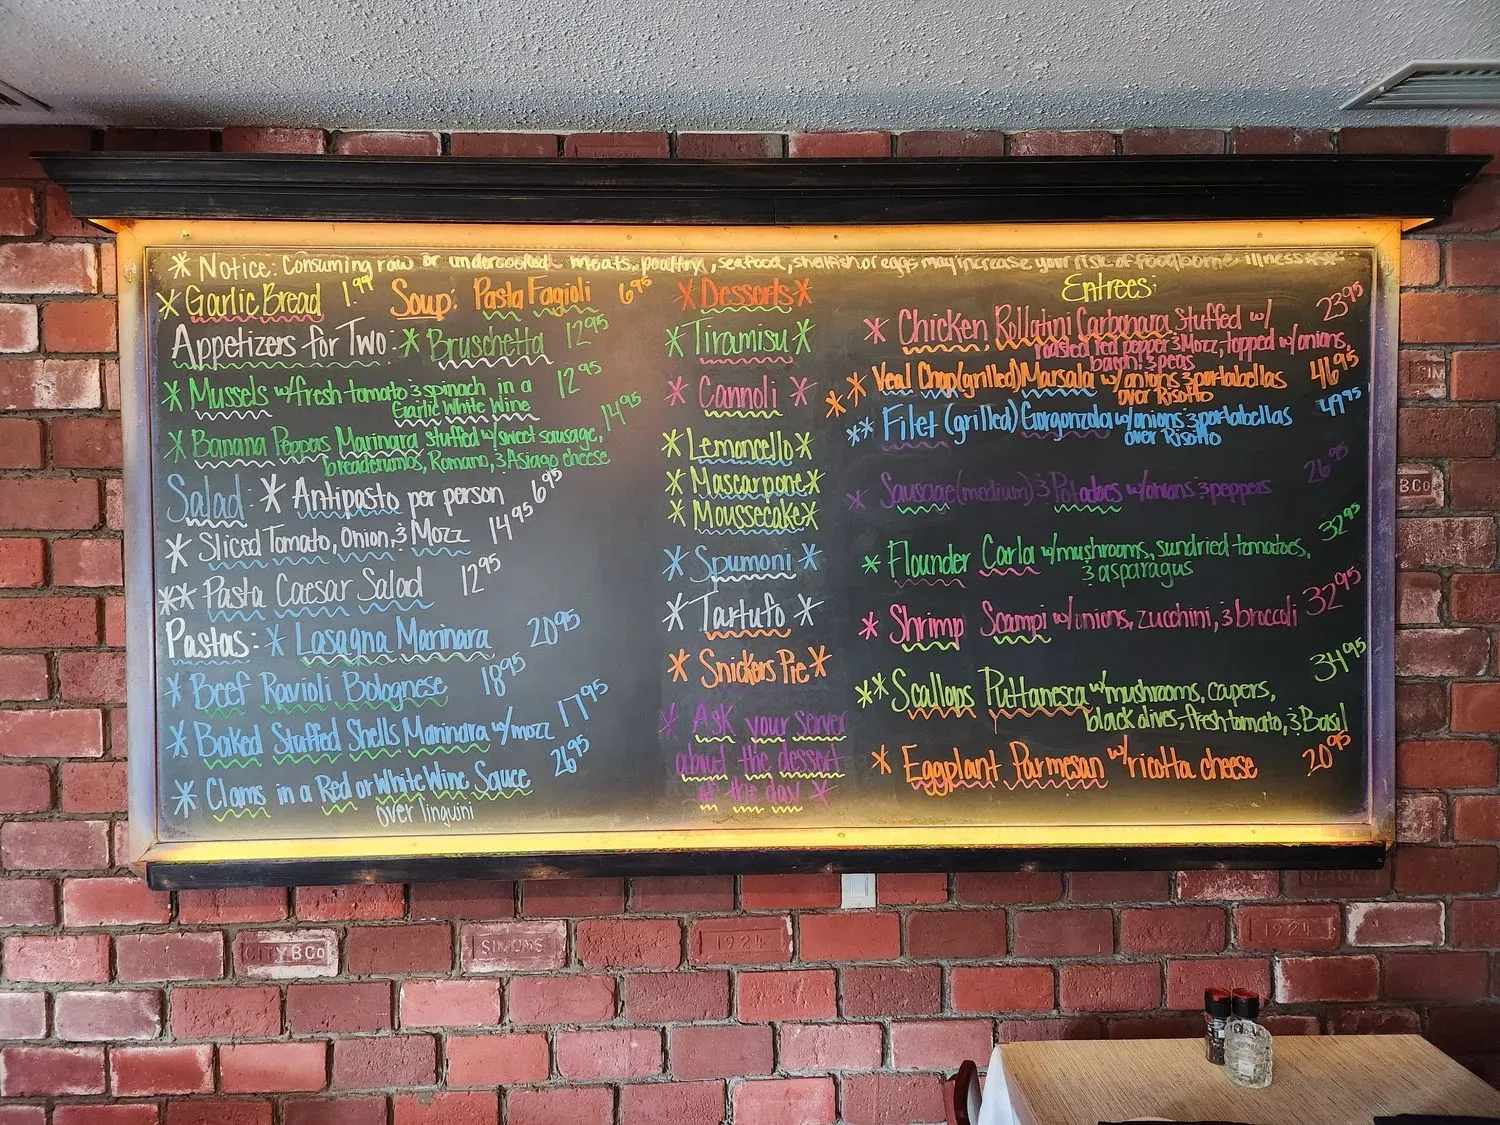 * Notice: Consuming raw or undercooked meats, poultry, seafood, shelfish, or eggs may increase your risk of foodborne illness ***
* Garlic Bread 1.99 Soup: Pasta Fagioli 6.95
Appetizers for Two: * Bruschetta 12.95
* Mussels w/fresh tomato & spinach in a 12.95
Garlic White Wine
* Banana Peppers Marinara stuffed w/sweet sausage, 14.95
breadcrumbs, Romano, & Asiago cheese
Salad: * Antipasto per person 6.95
* Sliced Tomato, Onion, & Mozz 14.95
** Pasta Caesar Salad 12.95
Pastas: * Lasagna Marinara 20.95
* Beef Ravioli Bolognese 18.95
* Baked Stuffed Shells Marinara w/mozz 17.95
* Clams in a Red or White Wine Sauce 26.95
over linguini
* Desserts *
* Tiramisu *
* Cannoli *
* Lemoncello *
* Mascarpone *
* Moussecake *
* Spumoni *
* Tartufo *
* Snickers Pie *
* Ask your server
about the dessert
of the day *
Entrees:
* Chicken Rollatini Carbonara Stuffed w/ 23.95
roasted red pepper & Mozz, topped w/onions,
bacon, & peas
** Veal Chop (grilled) Marsala w/onions & portabellas 46.95
over Risotto
** Filet (grilled) Gorgonzola w/onions & portabellas 49.95
over Risotto
* Sausage (medium) & Potatoes w/onions & peppers 26.95
* Flounder Carla w/mushrooms, sundried tomatoes, 32.95
& asparagus
* Shrimp Scampi w/onions, zucchini, & broccoli 32.95
** Scallops Puttanesca w/mushrooms, capers, 34.95
black olives, fresh tomato, & Basil
* Eggplant Parmesan w/ricotta cheese 20.95
CITYBCo
SIMONS
1924
1924
BCo